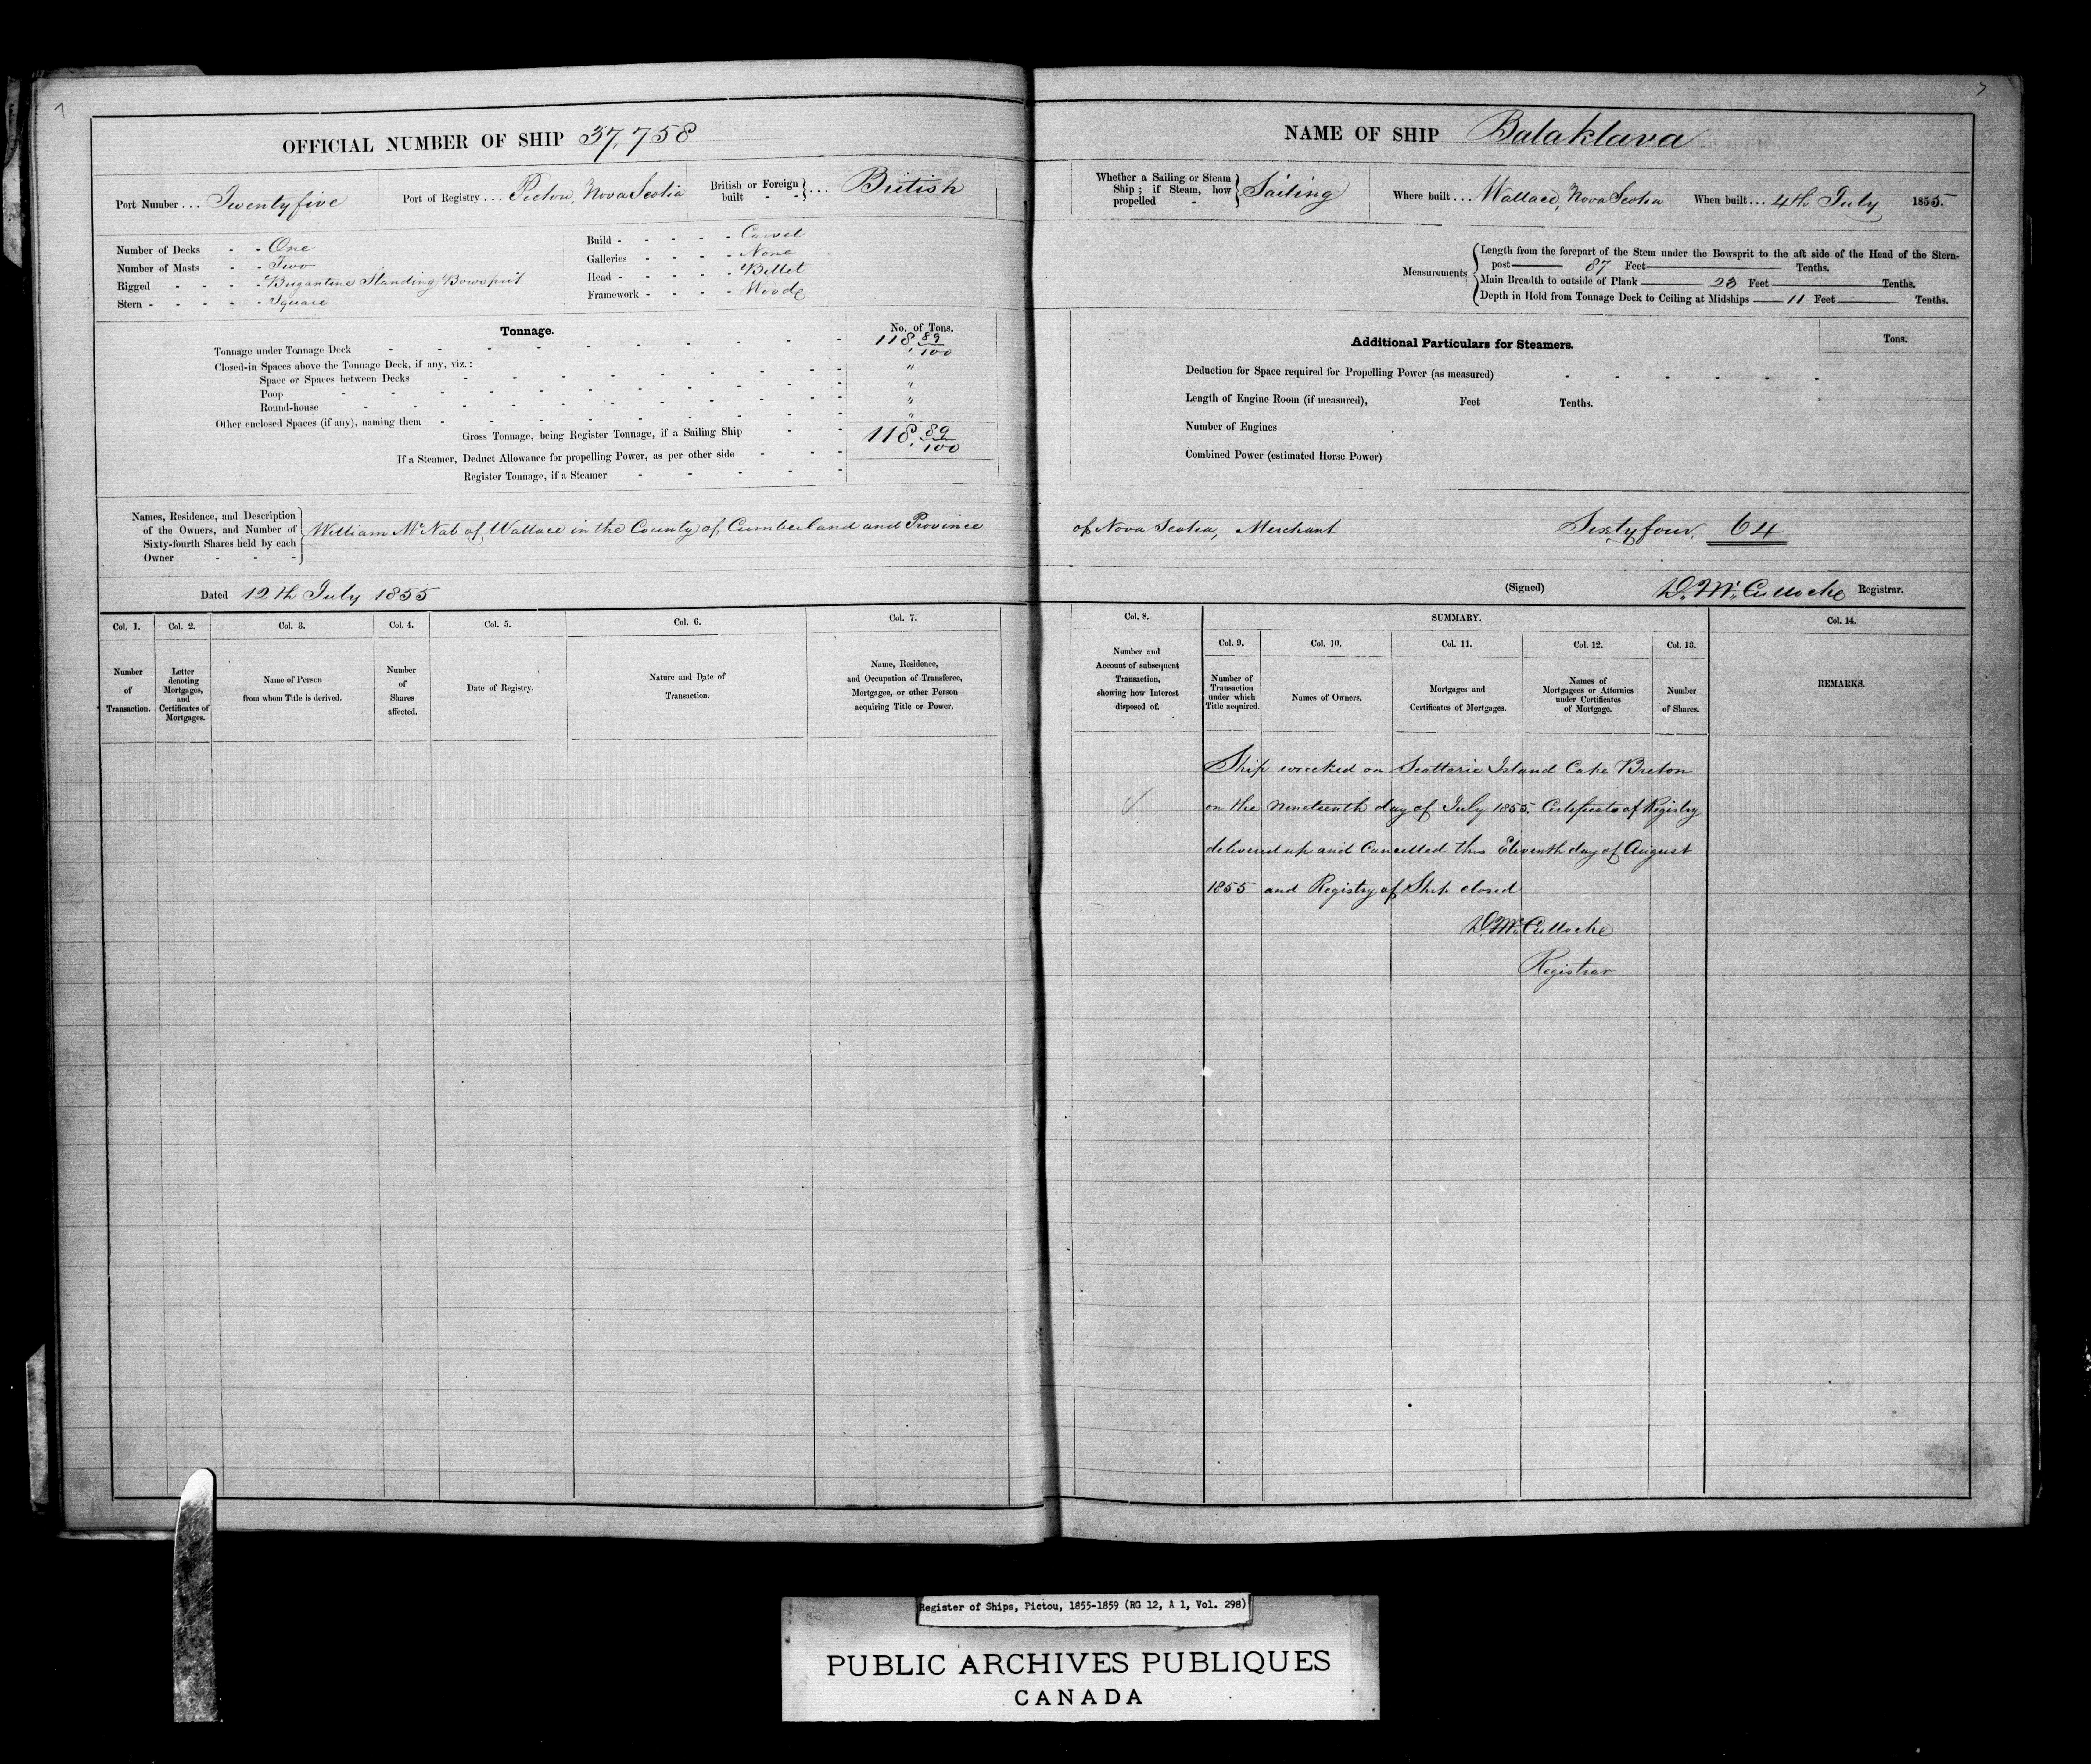 7
OFFICIAL NUMBER OF SHIP 37,758
Port Number ... Twentyfive
Port of Registry ... Pictou, Nova Scotia
British or Foreign built - - } ... British
Number of Decks - - One
Number of Masts - - Two
Rigged - - - - Brigantine Standing Bowsprit
Stern - - - - - Square
Build - - - - - Carvel
Galleries - - - - None
Head - - - - - Billet
Framework - - - - Wood
Tonnage.
No. of Tons.
Tonnage under Tonnage Deck - - - 118, 89/100
Closed-in Spaces above the Tonnage Deck, if any, viz.:
Space or Spaces between Decks - - - "
Poop - - - "
Round-house - - - "
Other enclosed Spaces (if any), naming them - - - "
Gross Tonnage, being Register Tonnage, if a Sailing Ship - - 118, 89/100
If a Steamer, Deduct Allowance for propelling Power, as per other side - - -
Register Tonnage, if a Steamer - - - - -
Names, Residence, and Description
of the Owners, and Number of
Sixty-fourth Shares held by each
Owner - - -
William McNab of Wallace in the County of Cumberland and Province
Dated 12th July 1855
Col. 1. Number of Transaction.
Col. 2. Letter denoting Mortgages, and Certificates of Mortgages.
Col. 3. Name of Person from whom Title is derived.
Col. 4. Number of Shares affected.
Col. 5. Date of Registry.
Col. 6. Nature and Date of Transaction.
Col. 7. Name, Residence, and Occupation of Transferee, Mortgagee, or other Person acquiring Title or Power.
7
NAME OF SHIP Balaklava
Whether a Sailing or Steam Ship; if Steam, how propelled - } Sailing
Where built ... Wallace, Nova Scotia
When built ... 4th July 1855.
Measurements
Length from the forepart of the Stem under the Bowsprit to the aft side of the Head of the Stern-
post 87 Feet Tenths.
Main Breadth to outside of Plank 23 Feet Tenths.
Depth in Hold from Tonnage Deck to Ceiling at Midships 11 Feet Tenths.
Additional Particulars for Steamers.
Tons.
Deduction for Space required for Propelling Power (as measured) - - - - - -
Length of Engine Room (if measured), Feet Tenths.
Number of Engines
Combined Power (estimated Horse Power)
of Nova Scotia, Merchant Sixty four, 64
(Signed) D. McCulloche Registrar.
Col. 8. Number and Account of subsequent Transaction, showing how Interest disposed of.
SUMMARY.
Col. 9. Number of Transaction under which Title acquired.
Col. 10. Names of Owners.
Col. 11. Mortgages and Certificates of Mortgages.
Col. 12. Names of Mortgagees or Attornies under Certificates of Mortgage.
Col. 13. Number of Shares.
Col. 14. REMARKS.
Ship wrecked on Scattarie Island Cape Breton
on the nineteenth day of July 1855. Certificate of Registry
delivered up and Cancelled this Eleventh day of August
1855 and Registry of Ship closed
D. McCulloche
Registrar
Register of Ships, Pictou, 1855-1859 (RG 12, A 1, Vol. 298)
PUBLIC ARCHIVES PUBLIQUES
CANADA